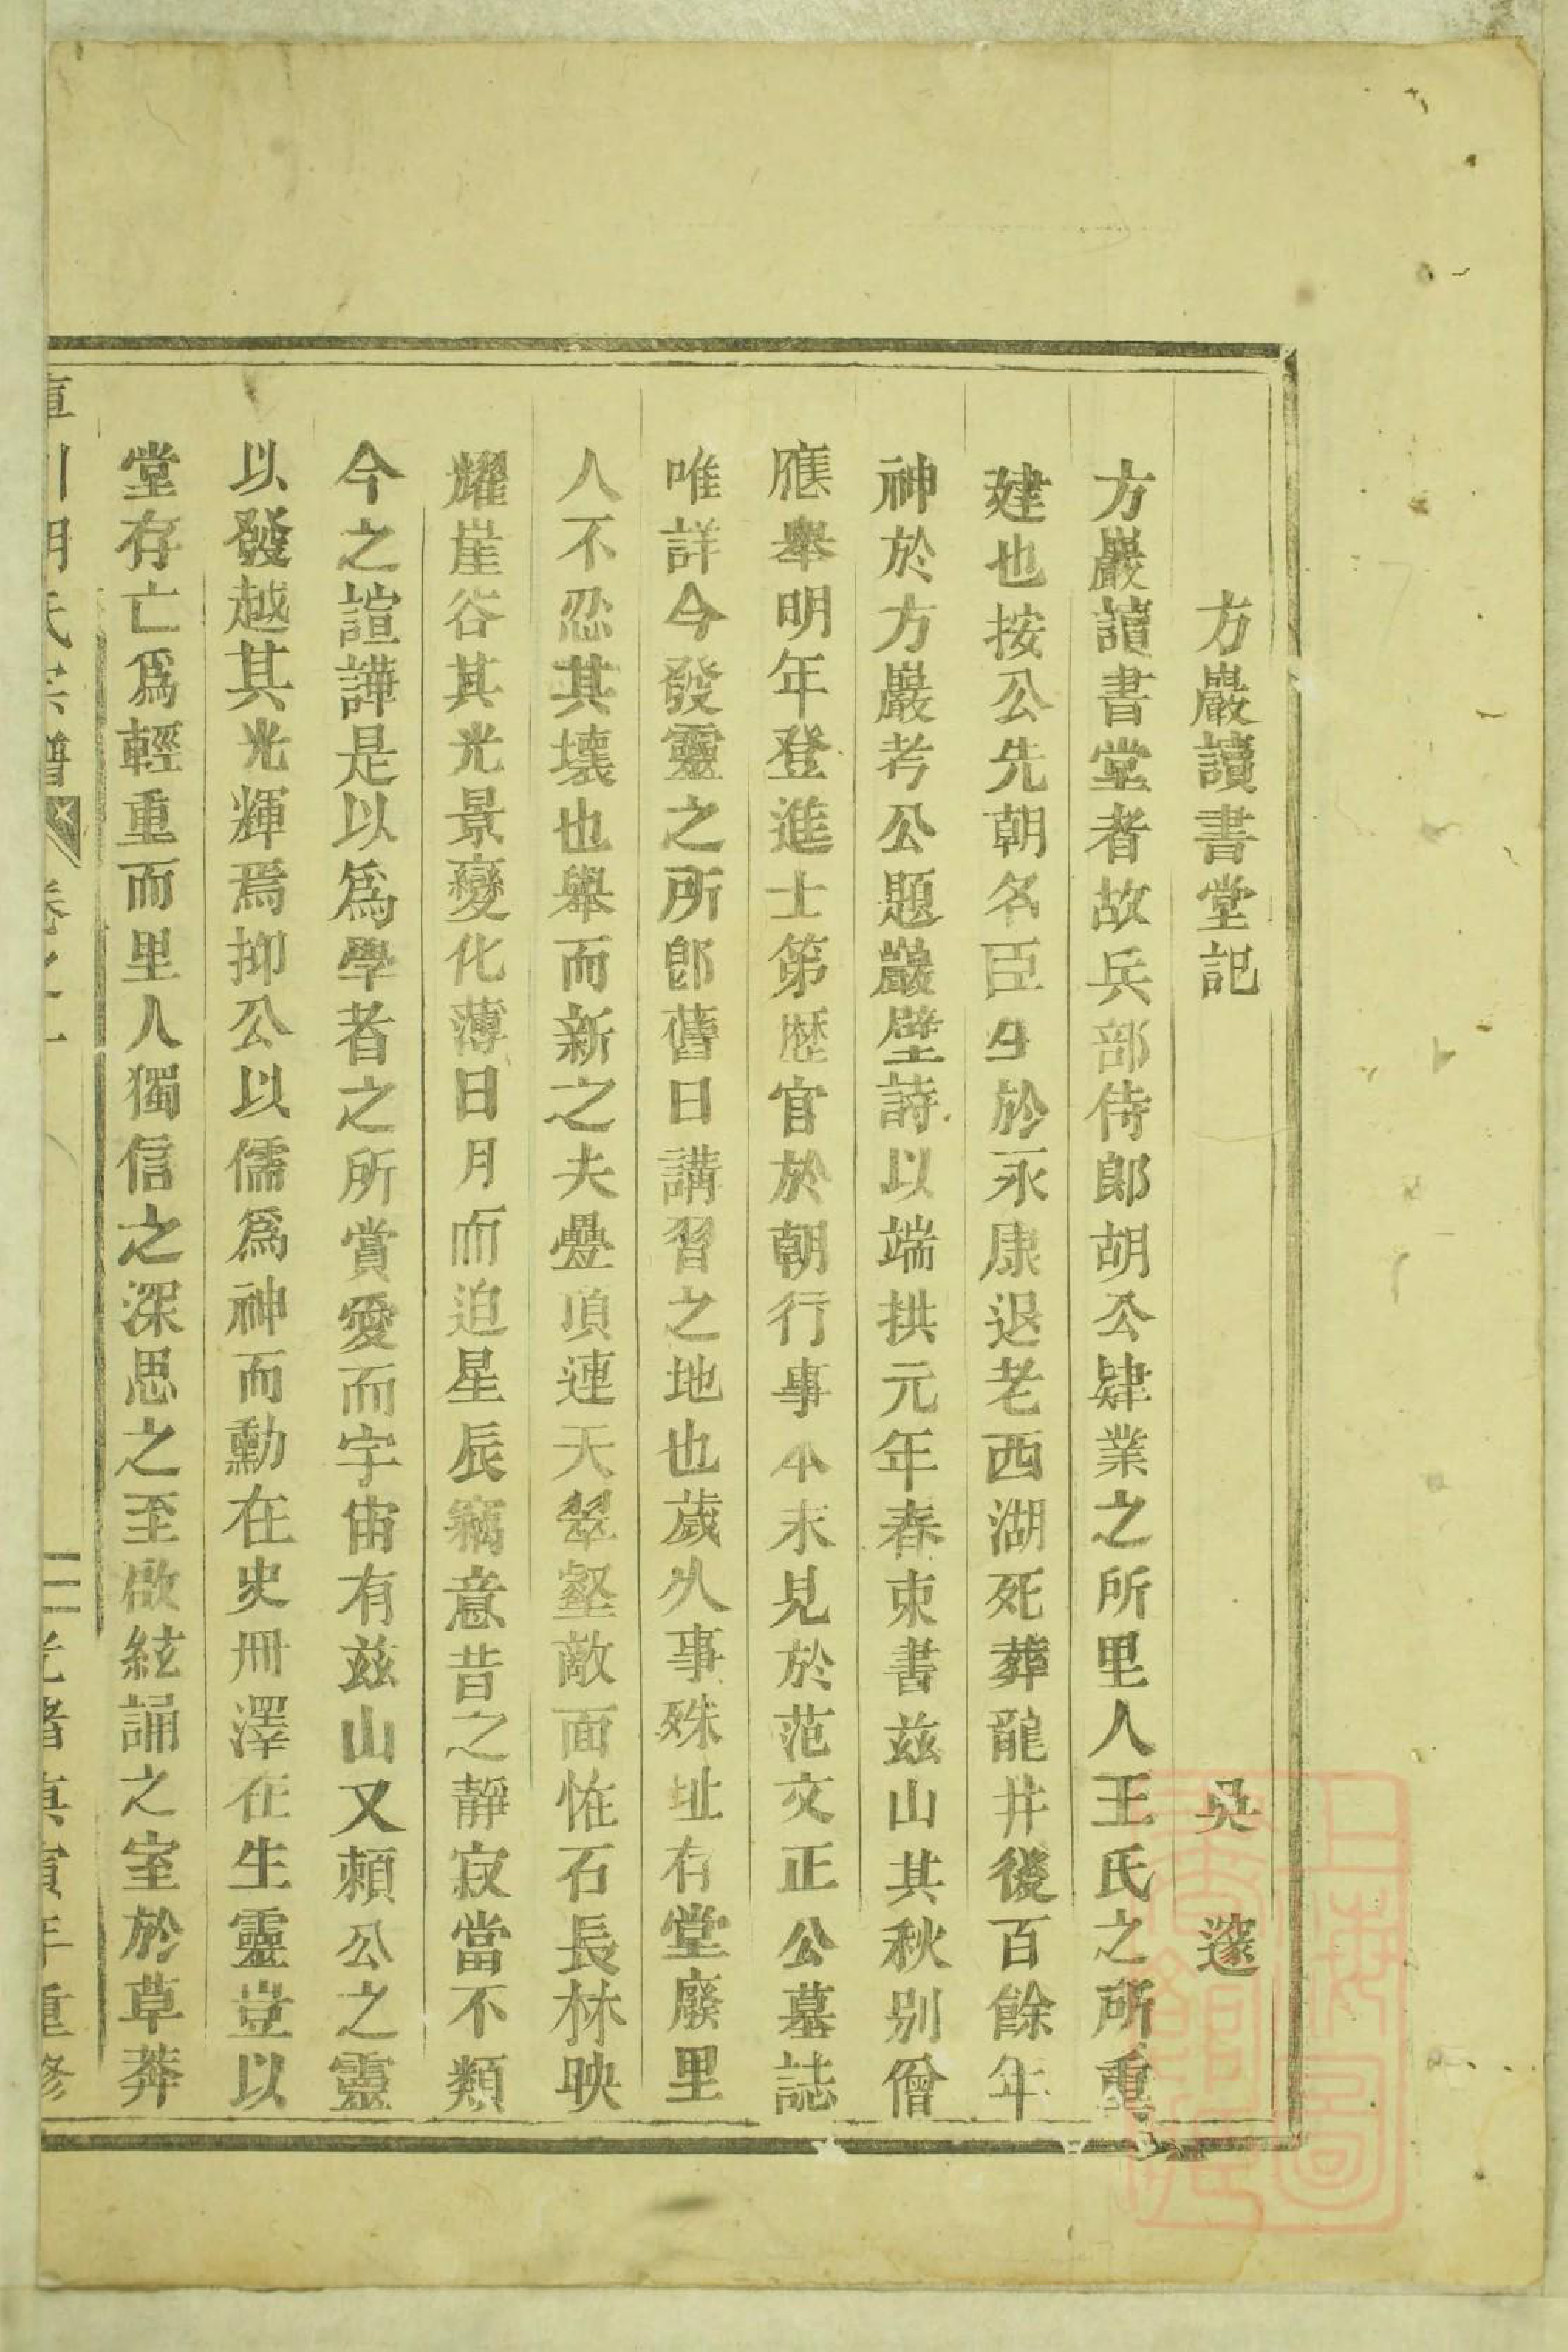 方巖讀書堂記
吳 邃
方巖讀書堂者故兵部侍郎胡公肄業之所里人王氏之所重
建也按公先朝名臣生於永康退老西湖死葬龍井後百餘年
神於方巖考公題巖壁詩以端拱元年春束書兹山其秋别僧
應舉明年登進士第歷官於朝行事本末見於范文正公墓誌
唯詳今發靈之所卽舊日講習之地也歲久事殊址存堂廢里
人不忍其壞也舉而新之夫疊頂連天翠壑敵面恠石長林映
耀崖谷其光景變化薄日月而迫星辰竊意昔之靜寂當不類
今之諠譁是以爲學者之所賞愛而宇宙有兹山又頼公之靈
以發越其光輝焉抑公以儒爲神而勳在史冊澤在生靈豈以
堂存亡爲輕重而里人獨信之深思之至啟絃誦之室於草莽
庫川胡氏宗譜 卷之一 二 光緒庚寅年重修
上海圖書館藏